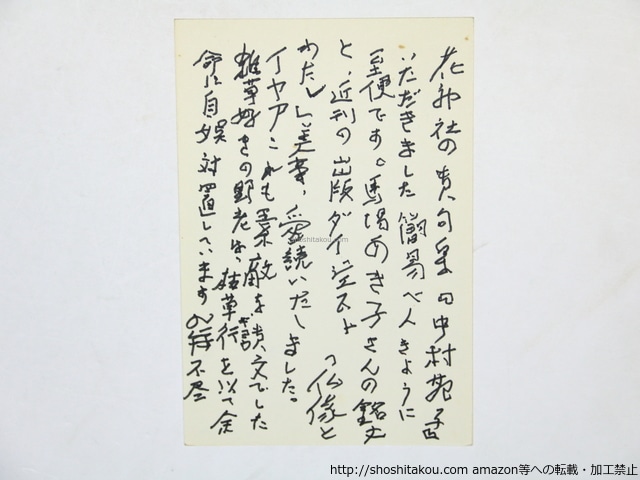 花神社の貴句集□中村苑子
いただきました 簡易べんきょうに
至便です。馬場あき子さんの銘文
と、近刊の出版ダイジェスト 「仏像と
わたし」美事、愛読いたしました。
イヤアこれも素敵な貴文でした
雑草好きの野老は、抜草行を以て余
命に自娯 対置しています 不尽
shoshitakou.com
http://shoshitakou.com amazon等への転載・加工禁止